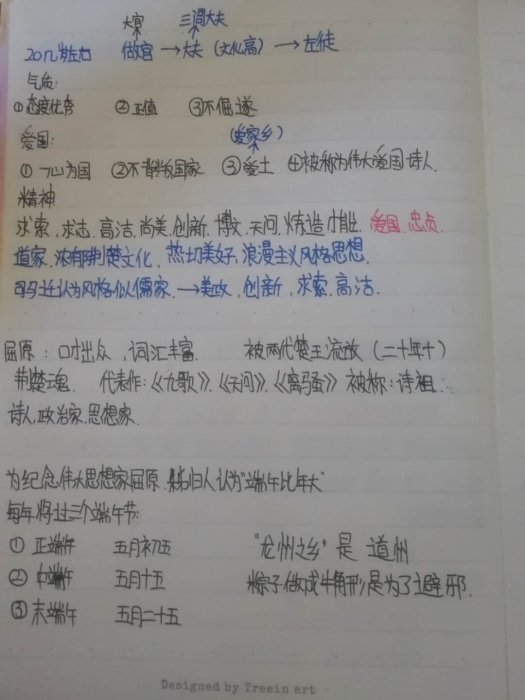 大官 三闾大夫
20几岁左右 做官→大夫(文化高)→左徒
气质:
①态度优秀 ②正值 ③不屈遂
爱国: (爱家乡)
①一心为国 ②不背叛国家 ③爱土 ④被称为伟大爱国诗人.
精神
求索.求志.高洁.尚美.创新.博文.天问.炼造才能.爱国.忠贞.
道家.浓有荆楚文化.热切美好.浪漫主义风格思想.
司马迁认为风格似儒家.→美政.创新.求索.高洁.
屈原:口才出众,词汇丰富. 被两代楚王流放(二十年+)
荆楚魂. 代表作:《九歌》.《天问》.《离骚》被称:诗祖.
诗人.政治家.思想家.
为纪念伟大思想家屈原.秭归人认为"端午比年大"
每年将过三个端午节:
①正端午 五月初五 "龙州之乡"是道州
②中端午 五月十五 粽子做成牛角形是为了避邪.
③末端午 五月二十五
Designed by Treein art